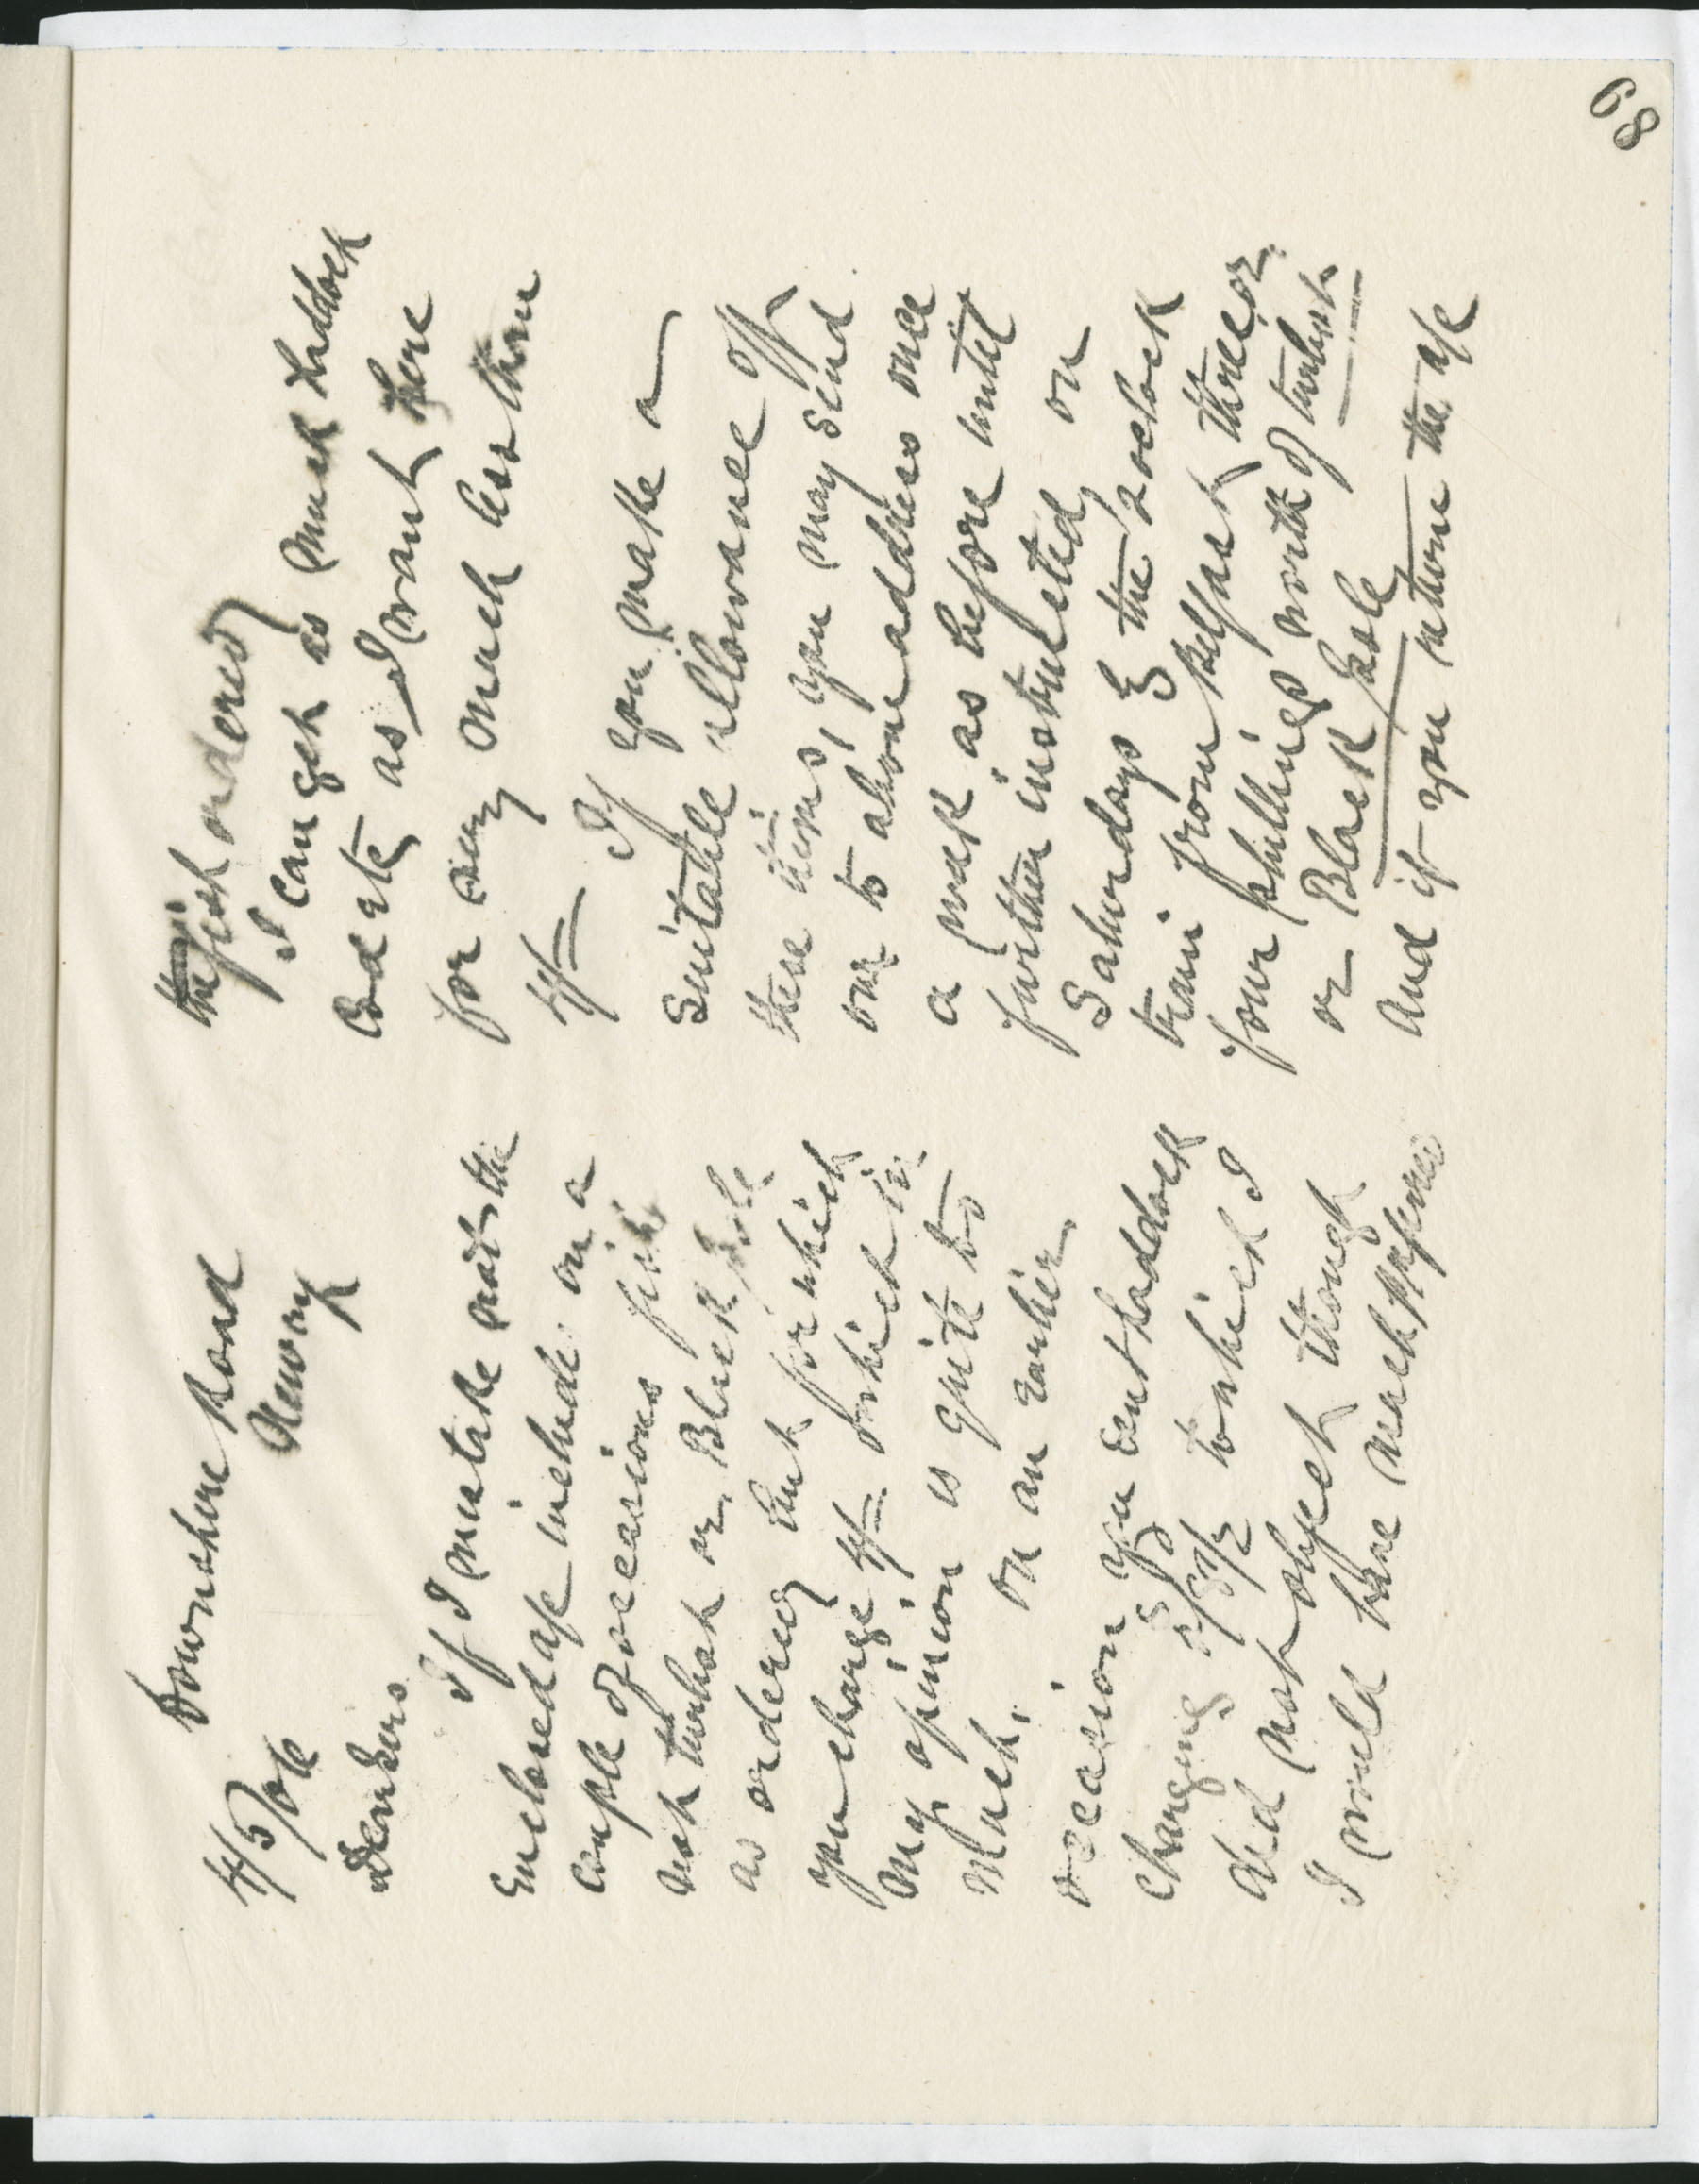 Downshire Road
Newry
4/5/06
Dear Sirs
If I mistake not the
Enclosed a/c includes on a
couple of occasions fish
not turbot or Black Sole
as ordered but for which
you charge 4/= which in
my opinion is quite too
much. on an earlier
occasion you sent haddock
charging to which I
did not object though
I would have much preferred
the fish ordered
I can get as much haddock
Cod etc as I want here
for very much less than
4/= If you make a
Suitable allowance off
these items, you may send
me to above address once
a week as before until
further instructed, on
Saturdays by the 2 oclock
train from Belfast three or
four shillings worth of turbot
or Black Sole
And if you return the a/c
68